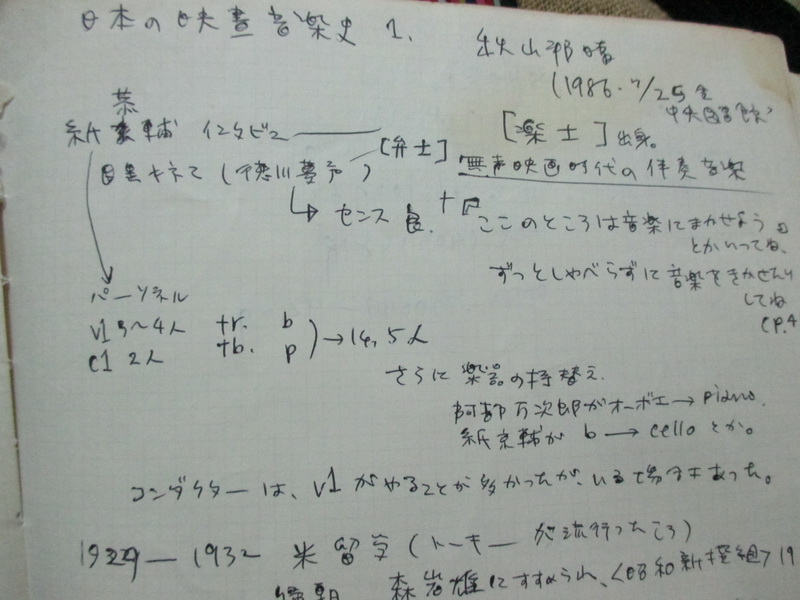 日本の映畫音楽史 1.
秋山邦晴
(1986.7/25金
中央図書館)
紙恭輔 インタビュー
[弁士]
[楽士]出身。
目黒キネマ(徳川夢声)
無声映画時代の伴奏音楽
センス良.
「ここのところは音楽にまかせよう」
とかいってね、
ずっとしゃべらずに音楽をきかせたり
してね
(P.4
パーソネル
vl 3〜4人 tr. b
cl 2人 tb. p
→14,5人
さらに楽器の持替え.
阿部万次郎がオーボエ→piano.
紙京輔が b→celloとか。
コンダクターは、vlがやることが多かったが、いる場合もあった。
1929—1932 米留学(トーキーが流行ったころ)
帰朝 森岩雄にすすめられ、<昭和新撰組>19